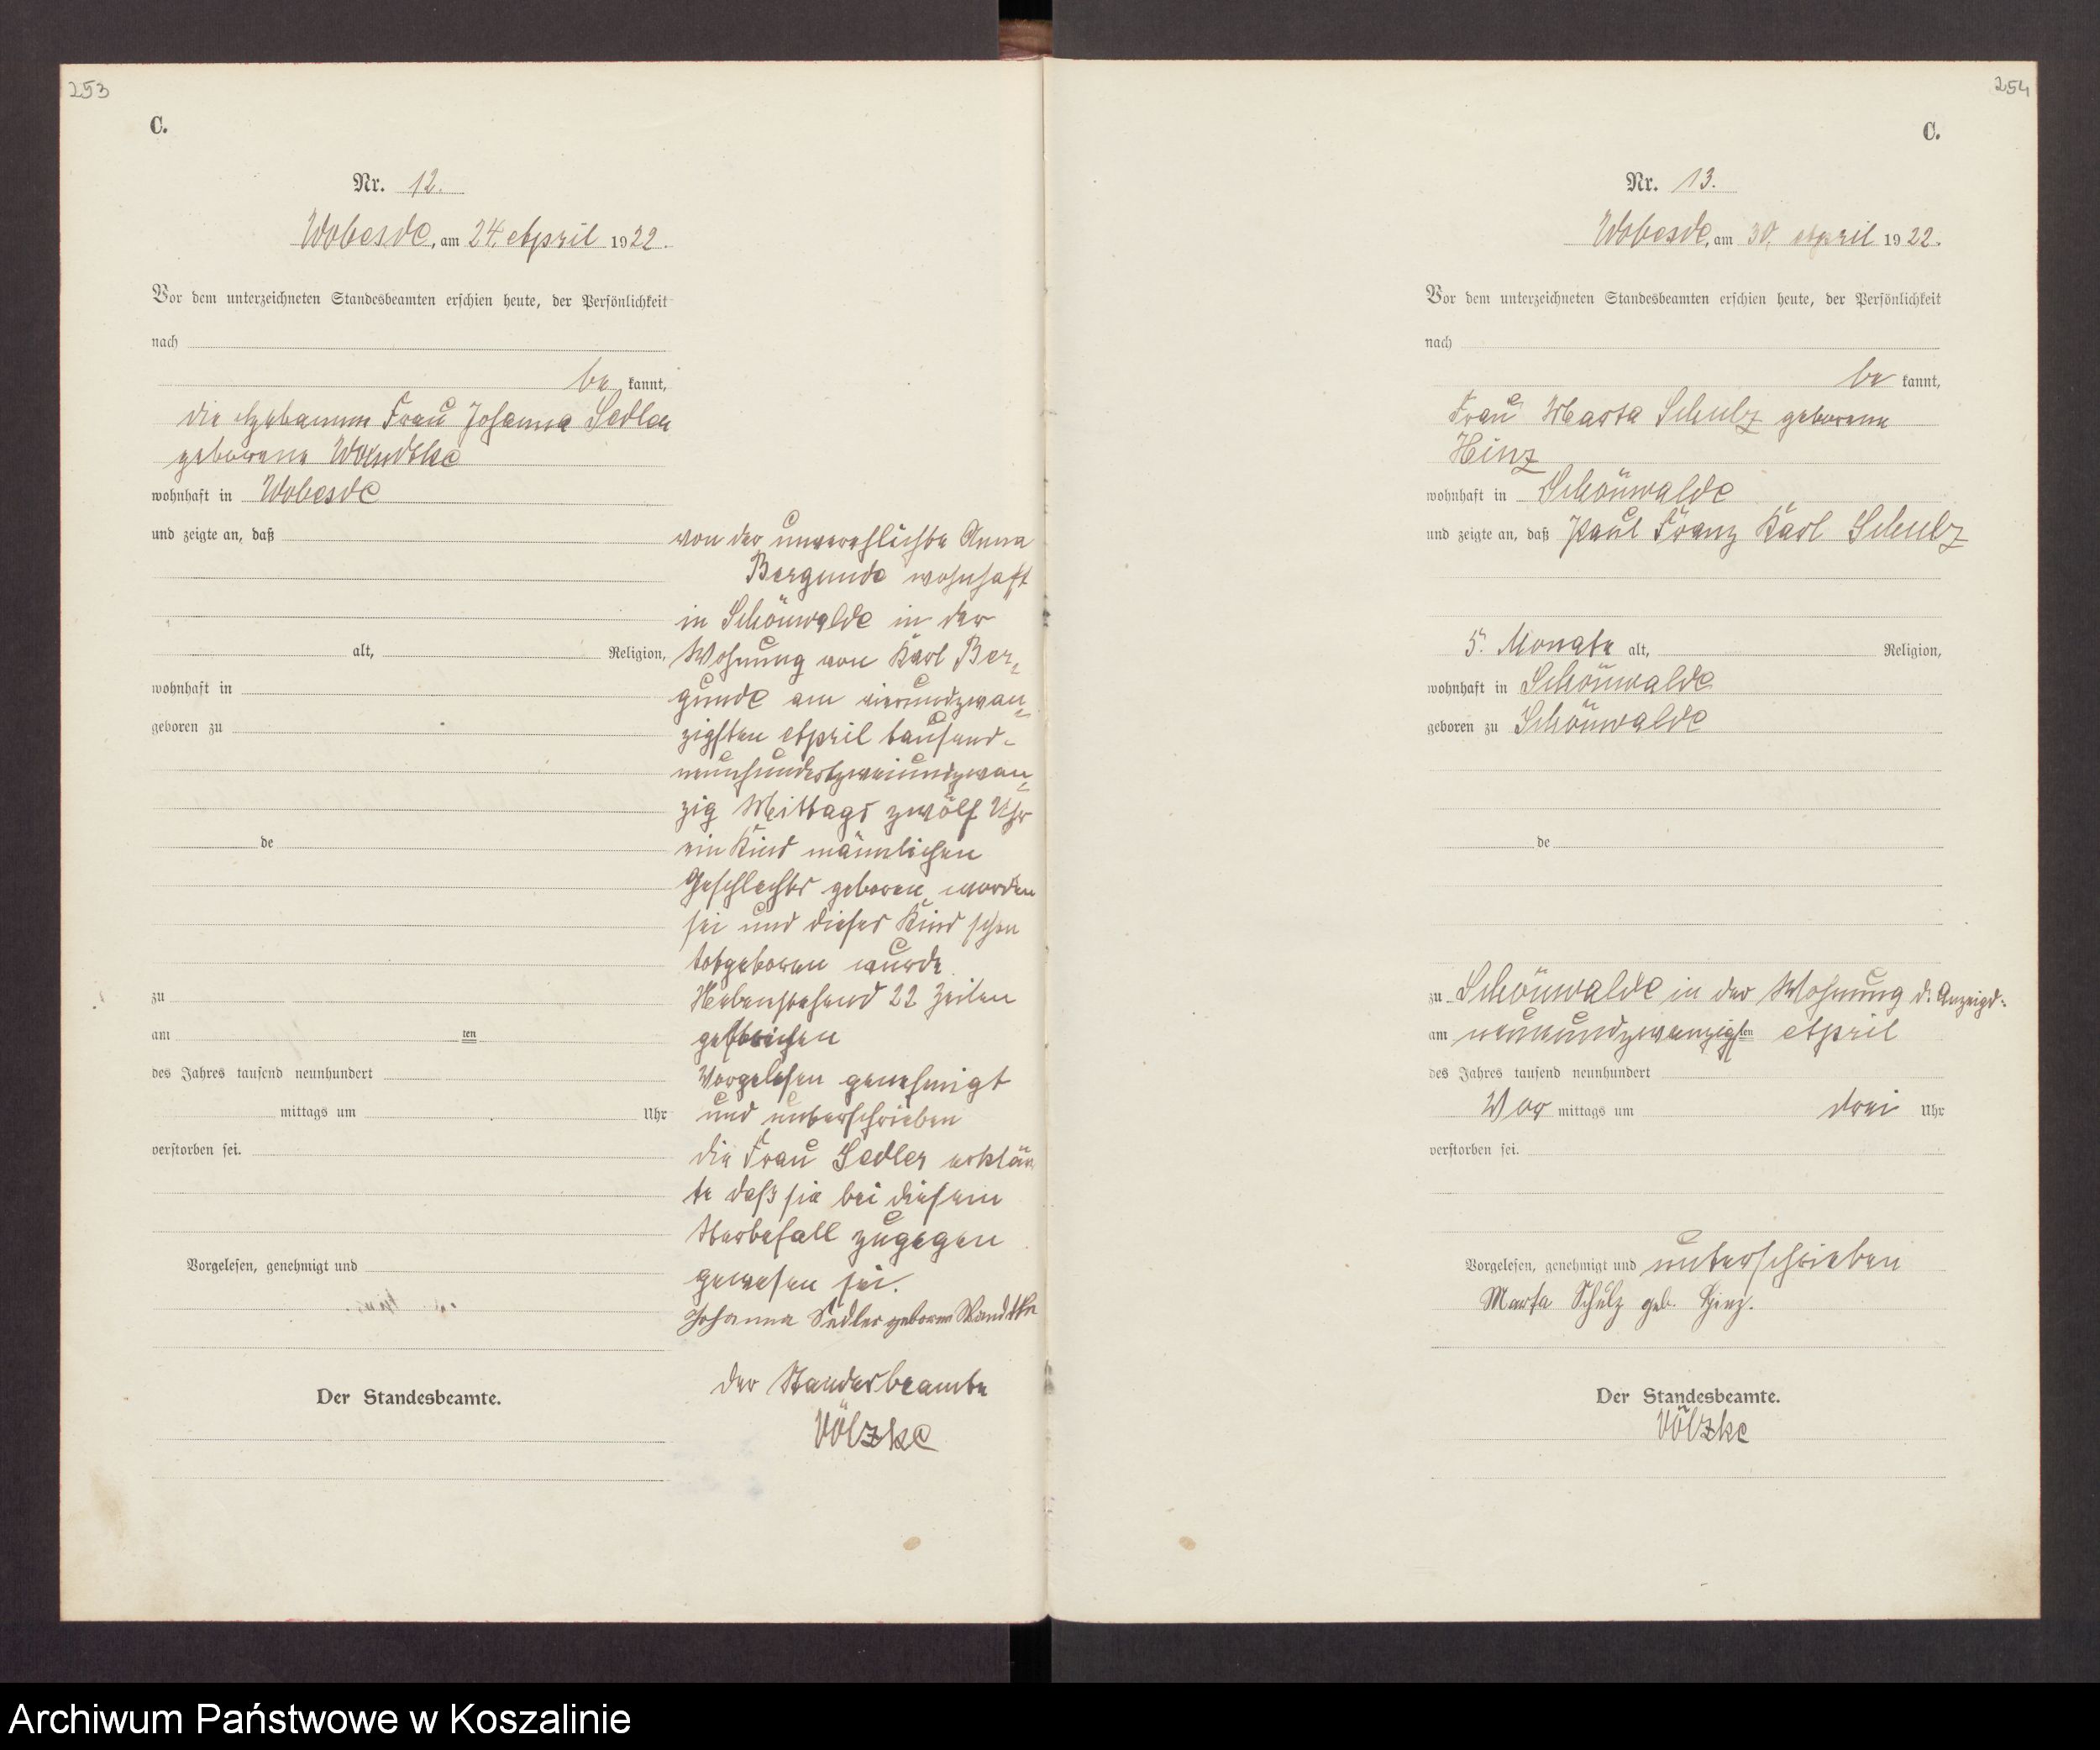 253
C.
Nr. 12.
Wobesde, am 24. April 1922.
Vor dem unterzeichneten Standesbeamten erschien heute, der Persönlichkeit
nach
be kannt,
die Hebamme Frau Johanna Sedler
geborene Wandtke
wohnhaft in Wobesde
und zeigte an, daß
alt, Religion,
wohnhaft in
geboren zu
de
zu
am ten
des Jahres tausend neunhundert
mittags um Uhr
verstorben sei.
Vorgelesen, genehmigt und
Der Standesbeamte.
von der unverehlichte Anna
Bergunde wohnhaft
in Schönwalde in der
Wohnung von Karl Ber-
gunde am vierundzwan-
zigsten April tausend-
neunhundertzweiundzwan-
zig Mittags zwölf Uhr
ein Kind männlichen
Geschlechts geboren worden
sei und dieses Kind schon
totgeboren wurde
Nebenstehend 22 Zeilen
gestrichen
Vorgelesen genehmigt
und unterschrieben
die Frau Sedler erklär
te daß sie bei diesem
Sterbefall zugegen
gewesen sei.
Johanna Sedler geborene Wandtke
Der Standesbeamte
Völzke
254
C.
Nr. 13.
Wobesde, am 30. April 1922.
Vor dem unterzeichneten Standesbeamten erschien heute, der Persönlichkeit
nach
be kannt,
Frau Marta Schulz geborene
Hinz
wohnhaft in Schönwalde
und zeigte an, daß Paul Franz Karl Schulz
5 Monate alt, Religion,
wohnhaft in Schönwalde
geboren zu Schönwalde
de
zu Schönwalde in der Wohnung d. Anzeigd.
am neunundzwanzigsten April
des Jahres tausend neunhundert
Vor mittags um drei Uhr
verstorben sei.
Vorgelesen, genehmigt und unterschrieben
Marta Schulz geb. Hinz.
Der Standesbeamte.
Völzke
Archiwum Państwowe w Koszalinie